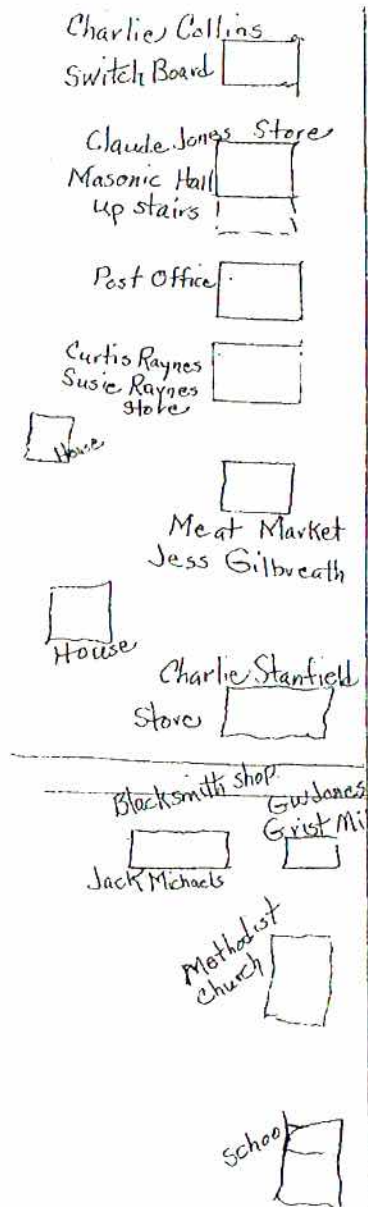 Charlie Collins
Switch Board
Claude Jones Store
Masonic Hall
up stairs
Post Office
Curtis Raynes
Susie Raynes
Store
House
Meat Market
Jess Gilbreath
House
Charlie Stanfield
Store
Blacksmith shop
GW Jones
Grist Mi
Jack Michaels
Methodist
Church
School